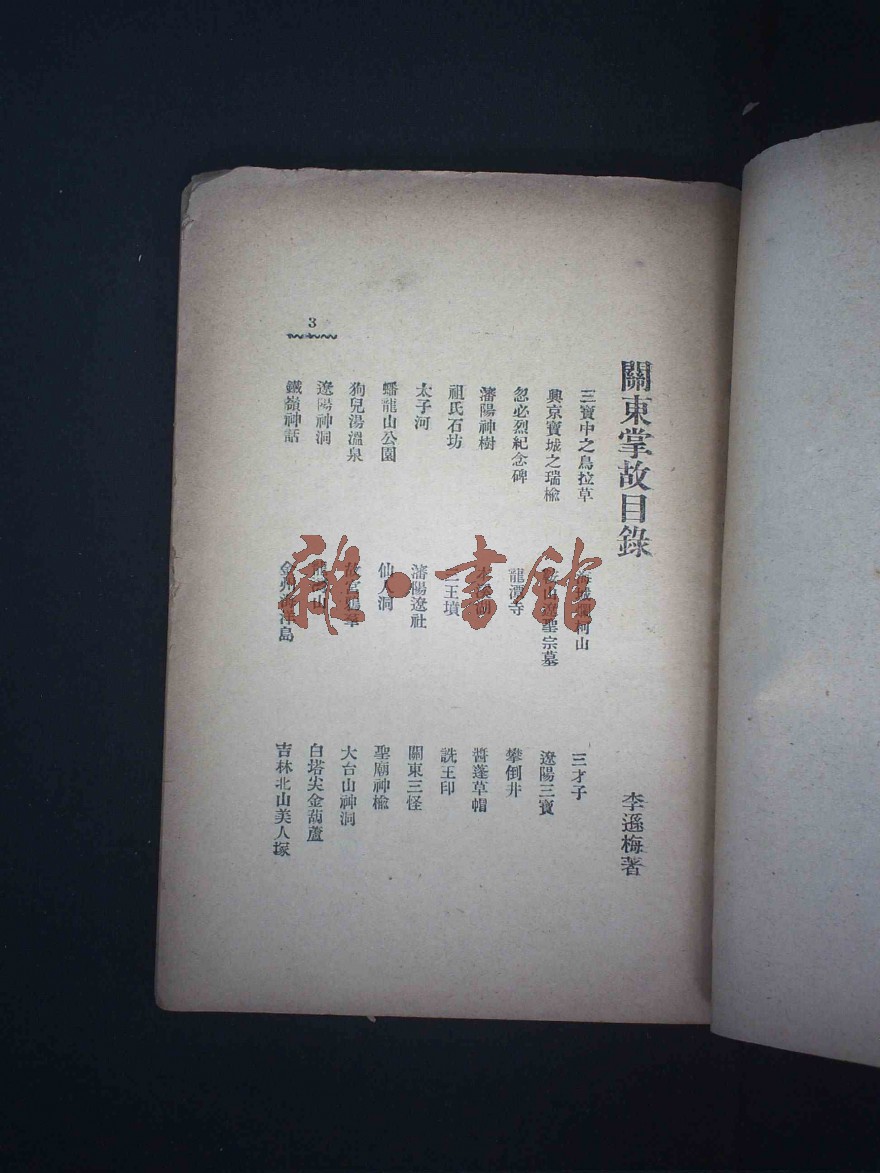 關東掌故目錄
李遜梅著
三寶中之烏拉草
興京寶城之瑞楡
忽必烈紀念碑
瀋陽神樹
祖氏石坊
太子河
蟠龍山公園
狗兒湯溫泉
遼陽神洞
鐵嶺神話
海城爛柯山
山遼聖宗墓
龍潭寺
二王墳
瀋陽遼社
仙人洞
山
金州海洋島
三才子
遼陽三寶
攀倒井
醬蓬草帽
詵王印
關東三怪
聖廟神楡
大台山神洞
白塔尖金葫蘆
吉林北山美人塚
3
雜·書館